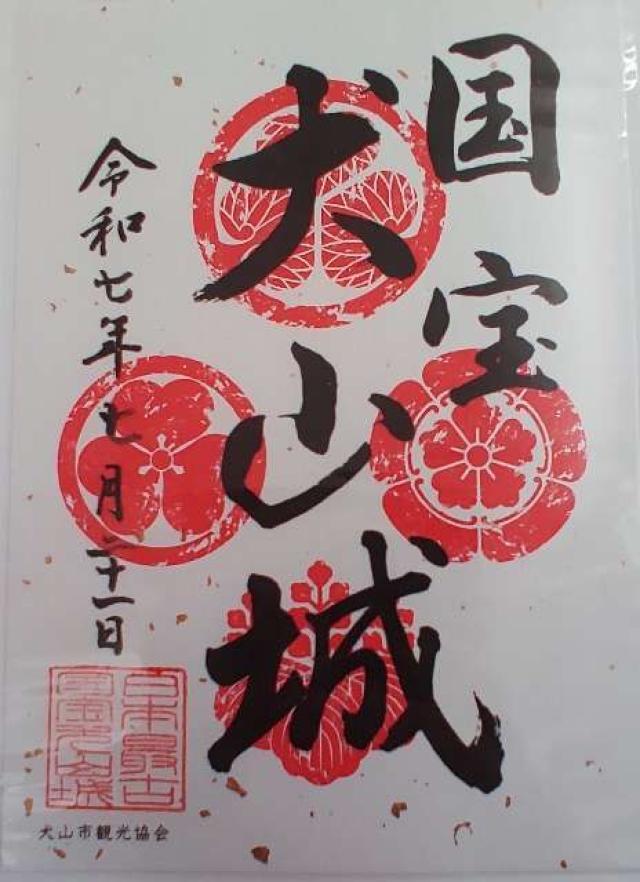 国宝
犬山城
令和七年七月二十一日
日本最古
犬山市観光協会